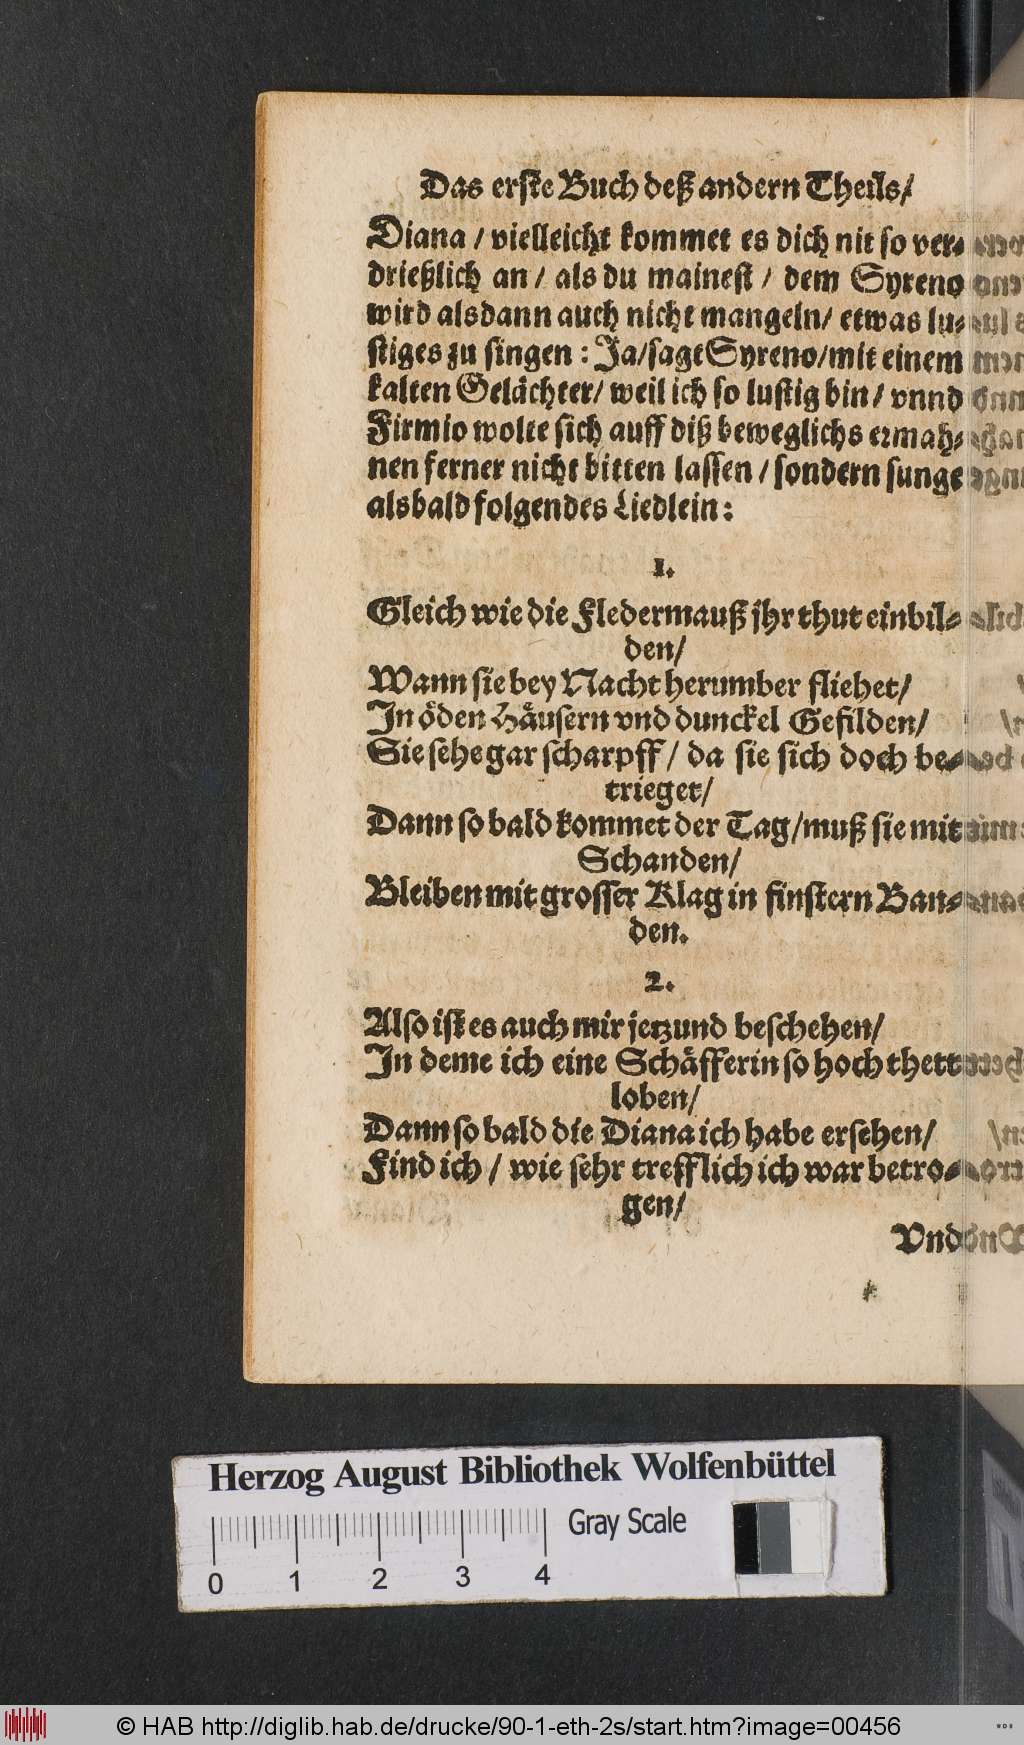 Das erste Buch deß andern Theils/
Diana / vielleicht kommet es dich nit so ver-
drießlich an / als du mainest / dem Syreno
wird alsdann auch nicht mangeln/ etwas lu-
stiges zu singen : Ja/sagt Syreno/mit einem
kalten Gelächter/ weil ich so lustig bin / vnnd
Firmio wolte sich auff diß beweglichs ermah-
nen ferner nicht bitten lassen / sondern sunge
alsbald folgendes Liedlein:
1.
Gleich wie die Fledermauß jhr thut einbil-
den/
Wann sie bey Nacht herumber fliehet/
In öden Häusern vnd dunckel Gefilden/
Sie sehe gar scharpff / da sie sich doch be-
trieget/
Dann so bald kommet der Tag/muß sie mit
Schanden/
Bleiben mit grosser Klag in finstern Ban-
den.
2.
Also ist es auch mir jetzund beschehen/
In deme ich eine Schäfferin so hoch thett
loben/
Dann so bald die Diana ich habe ersehen/
Find ich / wie sehr trefflich ich war betro-
gen/
Vnd
Herzog August Bibliothek Wolfenbüttel
Gray Scale
0 1 2 3 4
© HAB http://diglib.hab.de/drucke/90-1-eth-2s/start.htm?image=00456